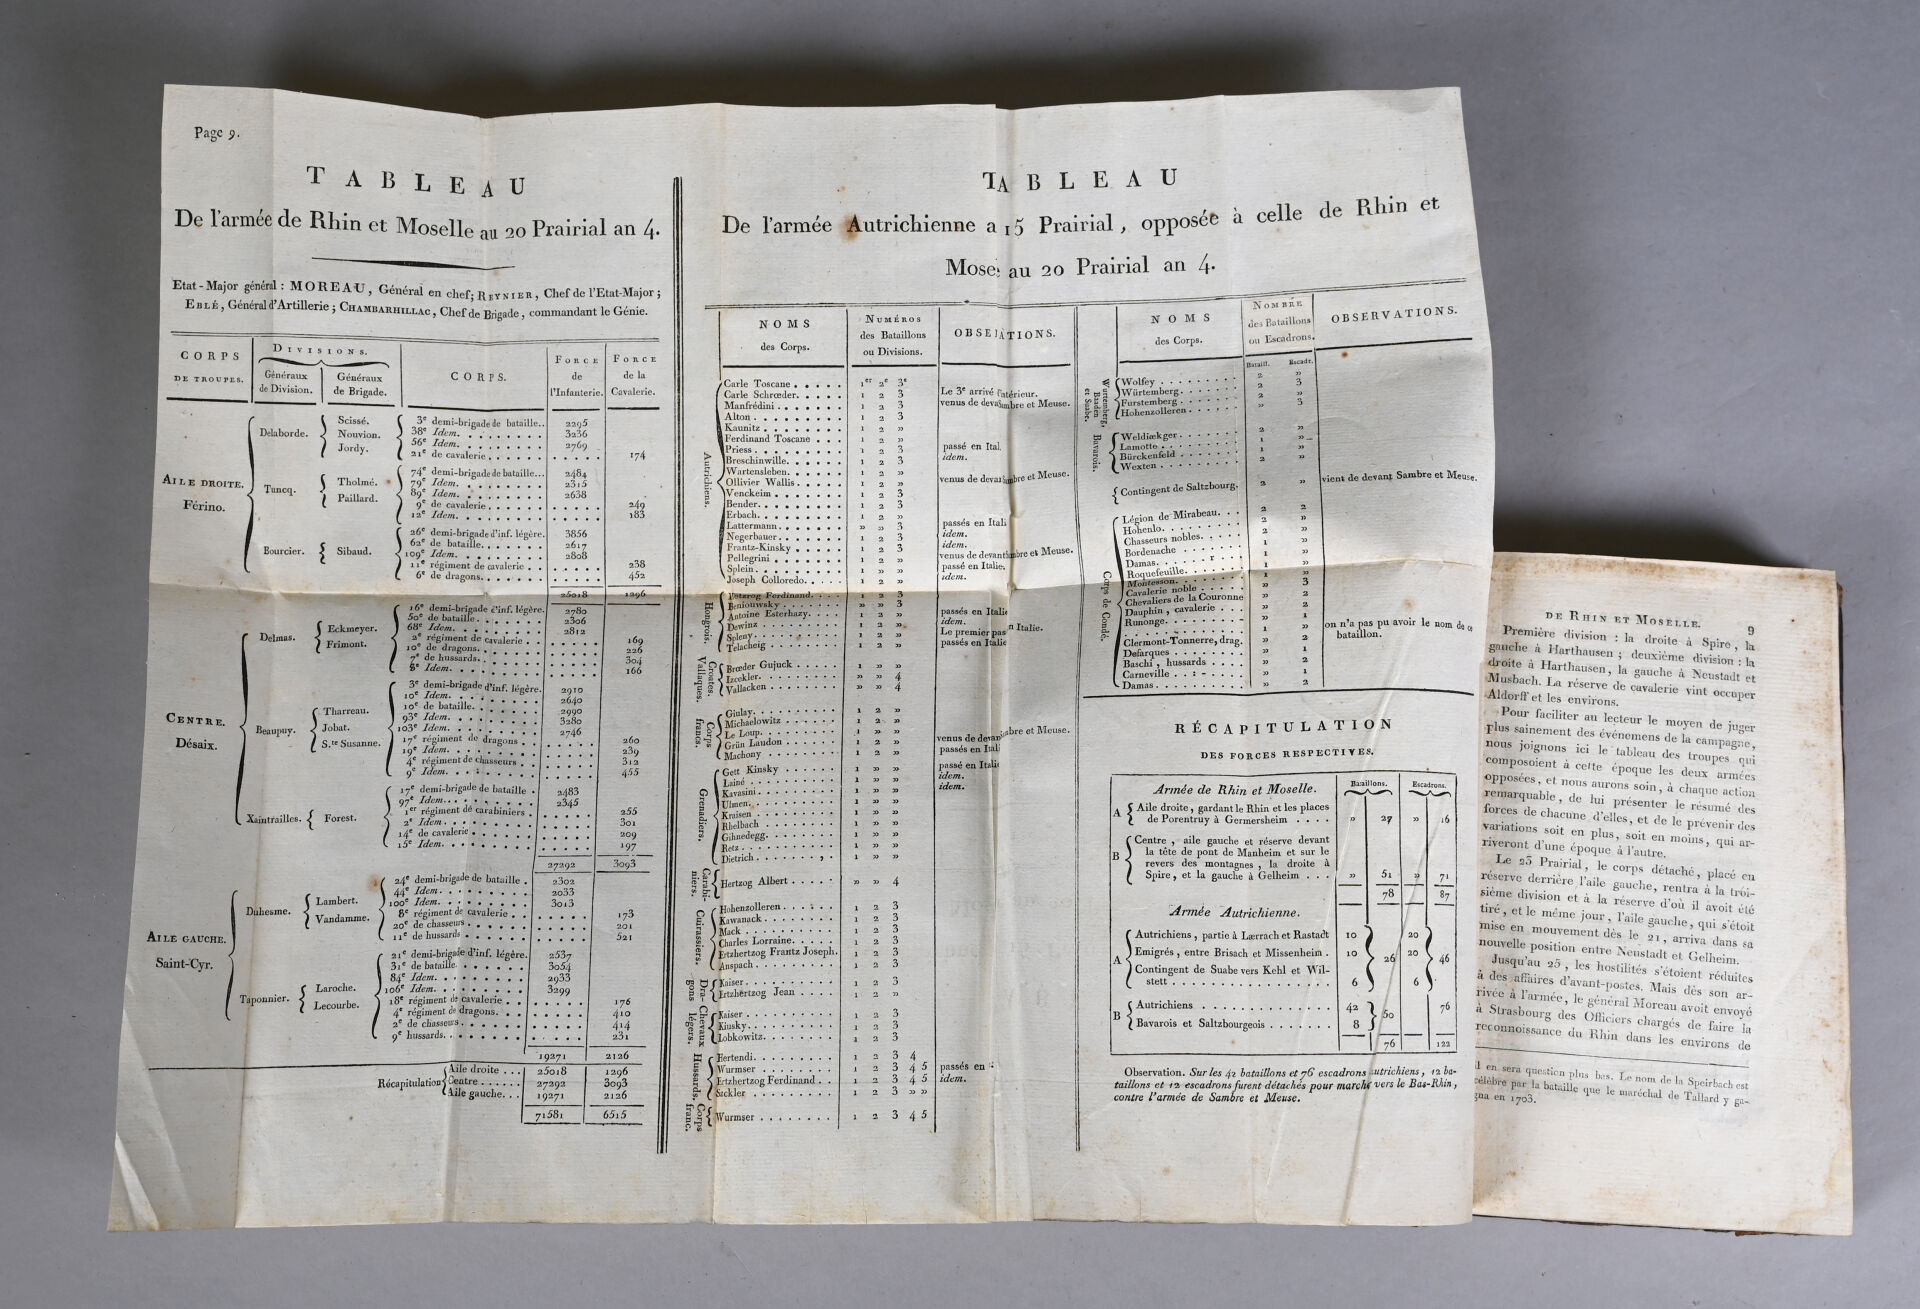 Page 9.
TABLEAU
De l'armée de Rhin et Moselle au 20 Prairial an 4.
Etat-Major général : MOREAU, Général en chef; REYNIER, Chef de l'Etat-Major;
EBLÉ, Général d'Artillerie; CHAMBARHILLAC, Chef de Brigade, commandant le Génie.
CORPS DE TROUPES.
DIVISIONS.
Généraux de Division.
Généraux de Brigade.
CORPS.
FORCE de l'Infanterie.
FORCE de la Cavalerie.
AILE DROITE.
Férino.
Delaborde.
Scissé.
Nouvion.
Jordy.
3e demi-brigade de bataille.. 2295
38e Idem. 3236
56e Idem. 2769
21e de cavalerie 174
Tuncq.
Tholmé.
Paillard.
74e demi-brigade de bataille... 2484
79e Idem. 2315
89e Idem. 2638
9e de cavalerie 249
12e Idem. 183
Bourcier.
Sibaud.
26e demi-brigade d'inf. légère. 3856
62e de bataille. 2617
109e Idem. 2808
11e régiment de cavalerie 238
6e de dragons. 452
25018 1296
CENTRE.
Désaix.
Delmas.
Eckmeyer.
Frimont.
16e demi-brigade d'inf. légère. 2780
50e de bataille. 2306
68e Idem. 2812
2e régiment de cavalerie 169
10e de dragons. 226
7e de hussards. 304
8e Idem. 166
Beaupuy.
Tharreau.
Jobat.
S.te Susanne.
3e demi-brigade d'inf. légère. 2910
10e Idem. 2640
10e de bataille. 2990
93e Idem. 3280
103e Idem. 2746
17e régiment de dragons 260
19e Idem. 239
4e régiment de chasseurs 312
9e Idem. 455
Xaintrailles.
Forest.
17e demi-brigade de bataille . 2483
97e Idem. 2345
1er régiment de carabiniers 255
2e Idem. 301
14e de cavalerie 209
15e Idem. 197
27292 3093
AILE GAUCHE.
Saint-Cyr.
Duhesme.
Lambert.
Vandamme.
24e demi-brigade de bataille . 2302
44e Idem. 2033
100e Idem. 3013
8e régiment de cavalerie 173
20e de chasseurs 201
11e de hussards 521
Taponnier.
Laroche.
Lecourbe.
21e demi-brigade d'inf. légère. 2537
31e de bataille. 3054
84e Idem. 2933
106e Idem. 3299
18e régiment de cavalerie 176
4e régiment de dragons. 410
2e de chasseurs 414
9e hussards. 231
19271 2126
Récapitulation
Aile droite ... 25018 1296
Centre ...... 27292 3093
Aile gauche... 19271 2126
71581 6515
TABLEAU
De l'armée Autrichienne a 15 Prairial, opposée à celle de Rhin et
Mose au 20 Prairial an 4.
NOMS des Corps.
NUMÉROS des Bataillons ou Divisions.
OBSERATIONS.
Autrichiens.
Carle Toscane 1er 2e 3e
Carle Schrœder. 1 2 3 Le 3e arrivé l'intérieur.
Manfrédini 1 2 3 venus de deva Sambre et Meuse.
Alton 1 2 3
Kaunitz 1 2 »
Ferdinand Toscane 1 2 »
Priess 1 2 3 passé en Ital
Breschinville. 1 2 3 idem.
Wartensleben. 1 2 »
Ollivier Wallis. 1 2 » venus de devan Sambre et Meuse.
Venckeim 1 2 3
Bender. 1 2 3
Erbach. 1 2 »
Lattermann » » 3 passés en Itali
Negerbauer 1 2 3 idem.
Frantz-Kinsky 1 2 3 idem.
Pellegrini 1 2 » venus de devant mbre et Meuse.
Splein 1 » » passé en Italie.
Joseph Colloredo. 1 2 » idem.
Hongrois.
Hetzrog Ferdinand. 1 2 3
Beniouwsky » » 3 passés en Italie
Antoine Esterhazy. 1 2 » idem.
Dewinz 1 2 3 Le premier pas n Italie.
Spleny 1 2 3 passés en Italie
Telacheig 1 2 »
Croates. Vallaques.
Brœder Gujuck 1 » »
Izcekler. » » 4
Vallacken » » 4
Corps francs.
Giulay. 1 2 »
Michaelowitz 1 2 »
Le Loup. 1 2 » venus de devan ambre et Meuse.
Grün Laudon 1 2 » passés en Itali
Machony 1 2 »
Grenadiers.
Gett Kinsky 1 » » passé en Italie
Lainé 1 » » idem.
Kavasini 1 » » idem.
Ulmen. 1 » »
Kraisen 1 » »
Rhelbach 1 » »
Gihnedegg. 1 » »
Retz 1 » »
Dietrich 1 » »
Carabiniers.
Hertzog Albert » » 4
Cuirassiers.
Hohenzolleren 1 2 3
Kawanack 1 2 3
Mack 1 2 3
Charles Lorraine. 1 2 3
Ertzhertzog Frantz Joseph. 1 2 3
Anspach 1 2 3
Dragons
Kaiser 1 2 3
Ertzhertzog Jean 1 2 »
Chevaux légers.
Kaiser 1 2 3
Kiusky 1 2 3
Lobkowitz 1 2 3
Hussards.
Hertendi. 1 2 3 4
Wurmser 1 2 3 4 5 passés en
Ertzhertzog Ferdinand 1 2 3 4 5 idem.
Szckler 1 2 3 » »
Corps franc.
Wurmser 1 2 3 4 5
NOMS des Corps.
NOMBRE des Bataillons ou Escadrons.
Bataill. Escadr.
OBSERVATIONS.
Wurtemberg, Baaden et Suabe.
Wolfey 2 »
Würtemberg. 2 3
Furstemberg 2 »
Hohenzolleren » 3
Bavarois.
Weldiækger 2 »
Lamotte 1 »
Bürckenfeld 1 »
Wexten 2 »
Contingent de Saltzbourg. 2 » vient de devant Sambre et Meuse.
Corps de Condé.
Légion de Mirabeau. 2 2
Hohenlo. 2 »
Chasseurs nobles. 2 »
Bordenache 1 »
Damas. 1 »
Roquefeuille. 1 »
Montesson. 1 »
Cavalerie noble » 3
Chevaliers de la Couronne » 2
Dauphin, cavalerie » 2
Runonge. » 1
1 » on n'a pas pu avoir le nom de ce bataillon.
Clermont-Tonnerre, drag. » 2
Defarques » 1
Baschi, hussards » 2
Carneville » 1
Damas » 2
RÉCAPITULATION
DES FORCES RESPECTIVES.
Bataillons. Escadrons.
Armée de Rhin et Moselle.
A Aile droite, gardant le Rhin et les places
de Porentruy à Germersheim .... » 27 » 16
B Centre, aile gauche et réserve devant
la tête de pont de Manheim et sur le
revers des montagnes, la droite à
Spire, et la gauche à Gelheim ... » 51 » 71
78 87
Armée Autrichienne.
A Autrichiens, partie à Lærrach et Rastadt 10 20
Emigrés, entre Brisach et Missenheim . 10 26 20 46
Contingent de Suabe vers Kehl et Wil-
stett 6 6
B Autrichiens 42 50 76
Bavarois et Saltzbourgeois 8
76 122
Observation. Sur les 42 bataillons et 76 escadrons autrichiens, 12 ba-
taillons et 12 escadrons furent détachés pour marche vers le Bas-Rhin,
contre l'armée de Sambre et Meuse.
DE RHIN ET MOSELLE. 9
Première division : la droite à Spire, la
gauche à Harthausen ; deuxième division : la
droite à Harthausen, la gauche à Neustadt et
Musbach. La réserve de cavalerie vint occuper
Aldorff et les environs.
Pour faciliter au lecteur le moyen de juger
plus sainement des événemens de la campagne,
nous joignons ici le tableau des troupes qui
composoient à cette époque les deux armées
opposées, et nous aurons soin, à chaque action
remarquable, de lui présenter le résumé des
forces de chacune d'elles, et de le prévenir des
variations soit en plus, soit en moins, qui ar-
riveront d'une époque à l'autre.
Le 23 Prairial, le corps détaché, placé en
réserve derrière l'aile gauche, rentra à la troi-
sième division et à la réserve d'où il avoit été
tiré, et le même jour, l'aile gauche, qui s'étoit
mise en mouvement dès le 21, arriva dans sa
nouvelle position entre Neustadt et Gelheim.
Jusqu'au 25, les hostilités s'étoient réduites
à des affaires d'avant-postes. Mais dès son ar-
rivée à l'armée, le général Moreau avoit envoyé
à Strasbourg des Officiers chargés de faire la
reconnoissance du Rhin dans les environs de
il en sera question plus bas. Le nom de la Speirbach est
célèbre par la bataille que le maréchal de Tallard y ga-
gna en 1703.